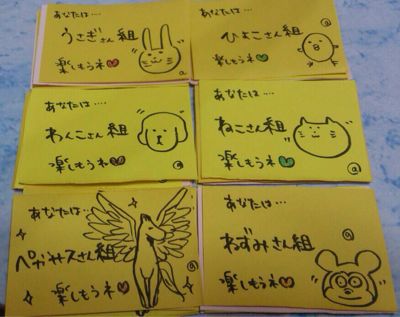 あなたは‥‥
うさぎさん組
楽しもうネ
a
あなたは‥‥
ひよこさん組
楽しもうネ
a
あなたは‥‥
わんこさん組
楽しもうネ
a
あなたは‥‥
ねこさん組
楽しもうネ
a
あなたは‥‥
ペガサスさん組
楽しもうネ
a
あなたは‥‥
ねずみさん組
楽しもうネ
a